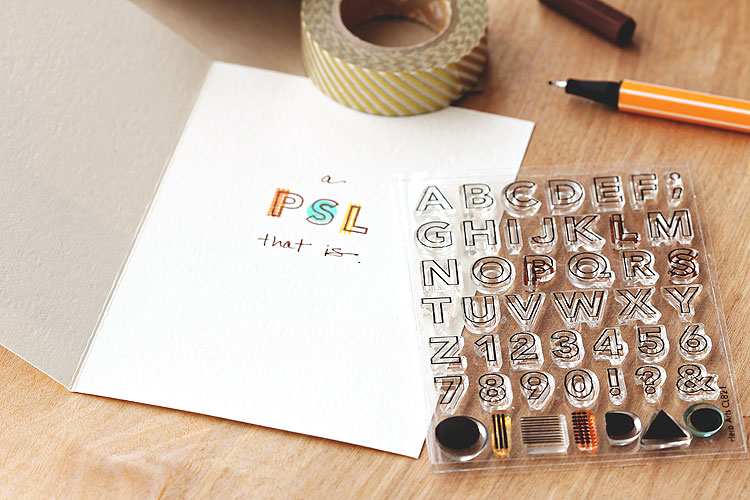 a
PSL
that is.
ABCDEF;
GHIJKLM
NOPQRS
TUVWXY
Z123456
7890!?&
Hero Arts CL821